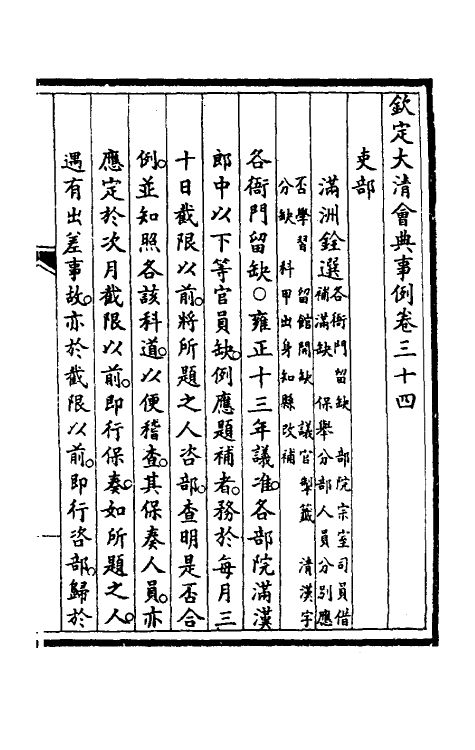 欽定大清會典事例卷三十四
吏部
滿洲銓選各衙門留缺 部院宗室司員借
補滿缺 保舉分部人員分別應
否學習 留館開缺 議官掣籤 清漢字
分缺 科甲出身知縣改補
各衙門留缺○雍正十三年議准。各部院滿漢
郎中以下等官員缺。例應題補者。務於每月三
十日截限以前。將所題之人咨部。查明是否合
例。並知照各該科道。以便稽查。其保奏人員。亦
應定於次月截限以前。即行保奏。如所題之人。
遇有出差事故。亦於截限以前。即行咨部。歸於